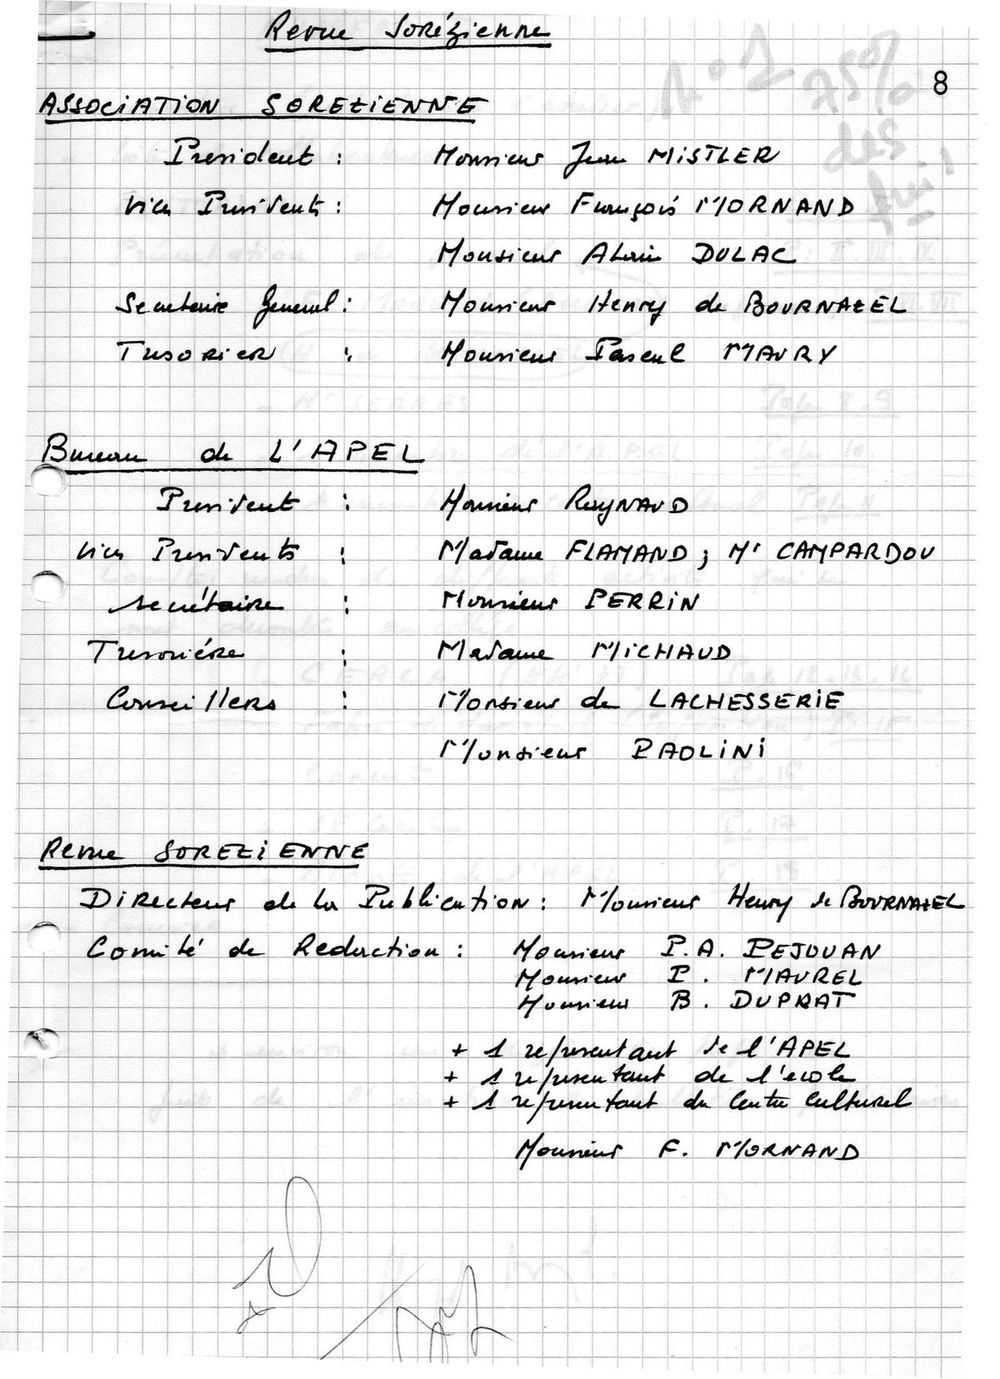 Revue Sorézienne
8
N° 1
75%
des
ASSOCIATION SOREZIENNE
President : Monsieur Jean MISTLER
Vice Presidents : Monsieur François MORNAND
Monsieur Alain DULAC
Secretaire General : Monsieur Henry de BOURNAZEL
TresoRieR : Monsieur Pascal MAURY
Bureau de L'APEL
President : Monsieur RayNAUD
Vice Presidents : Madame FLAMAND ; Mr CAMPARDOU
secrétaire : Monsieur PERRIN
Tresoriére : Madame MICHAUD
Conseillers : Monsieur de LACHESSERIE
Monsieur PAOLINI
Revue SOREZIENNE
Directeur de la Publication : Monsieur Henry de BOURNAZEL
Comité de Redaction : Monsieur P.A. PEJOUAN
Monsieur P. MAUREL
Monsieur B. DUPRAT
+ 1 representant de l'APEL
+ 1 representant de l'ecole
+ 1 representant du Centre Culturel
Monsieur F. MORNAND